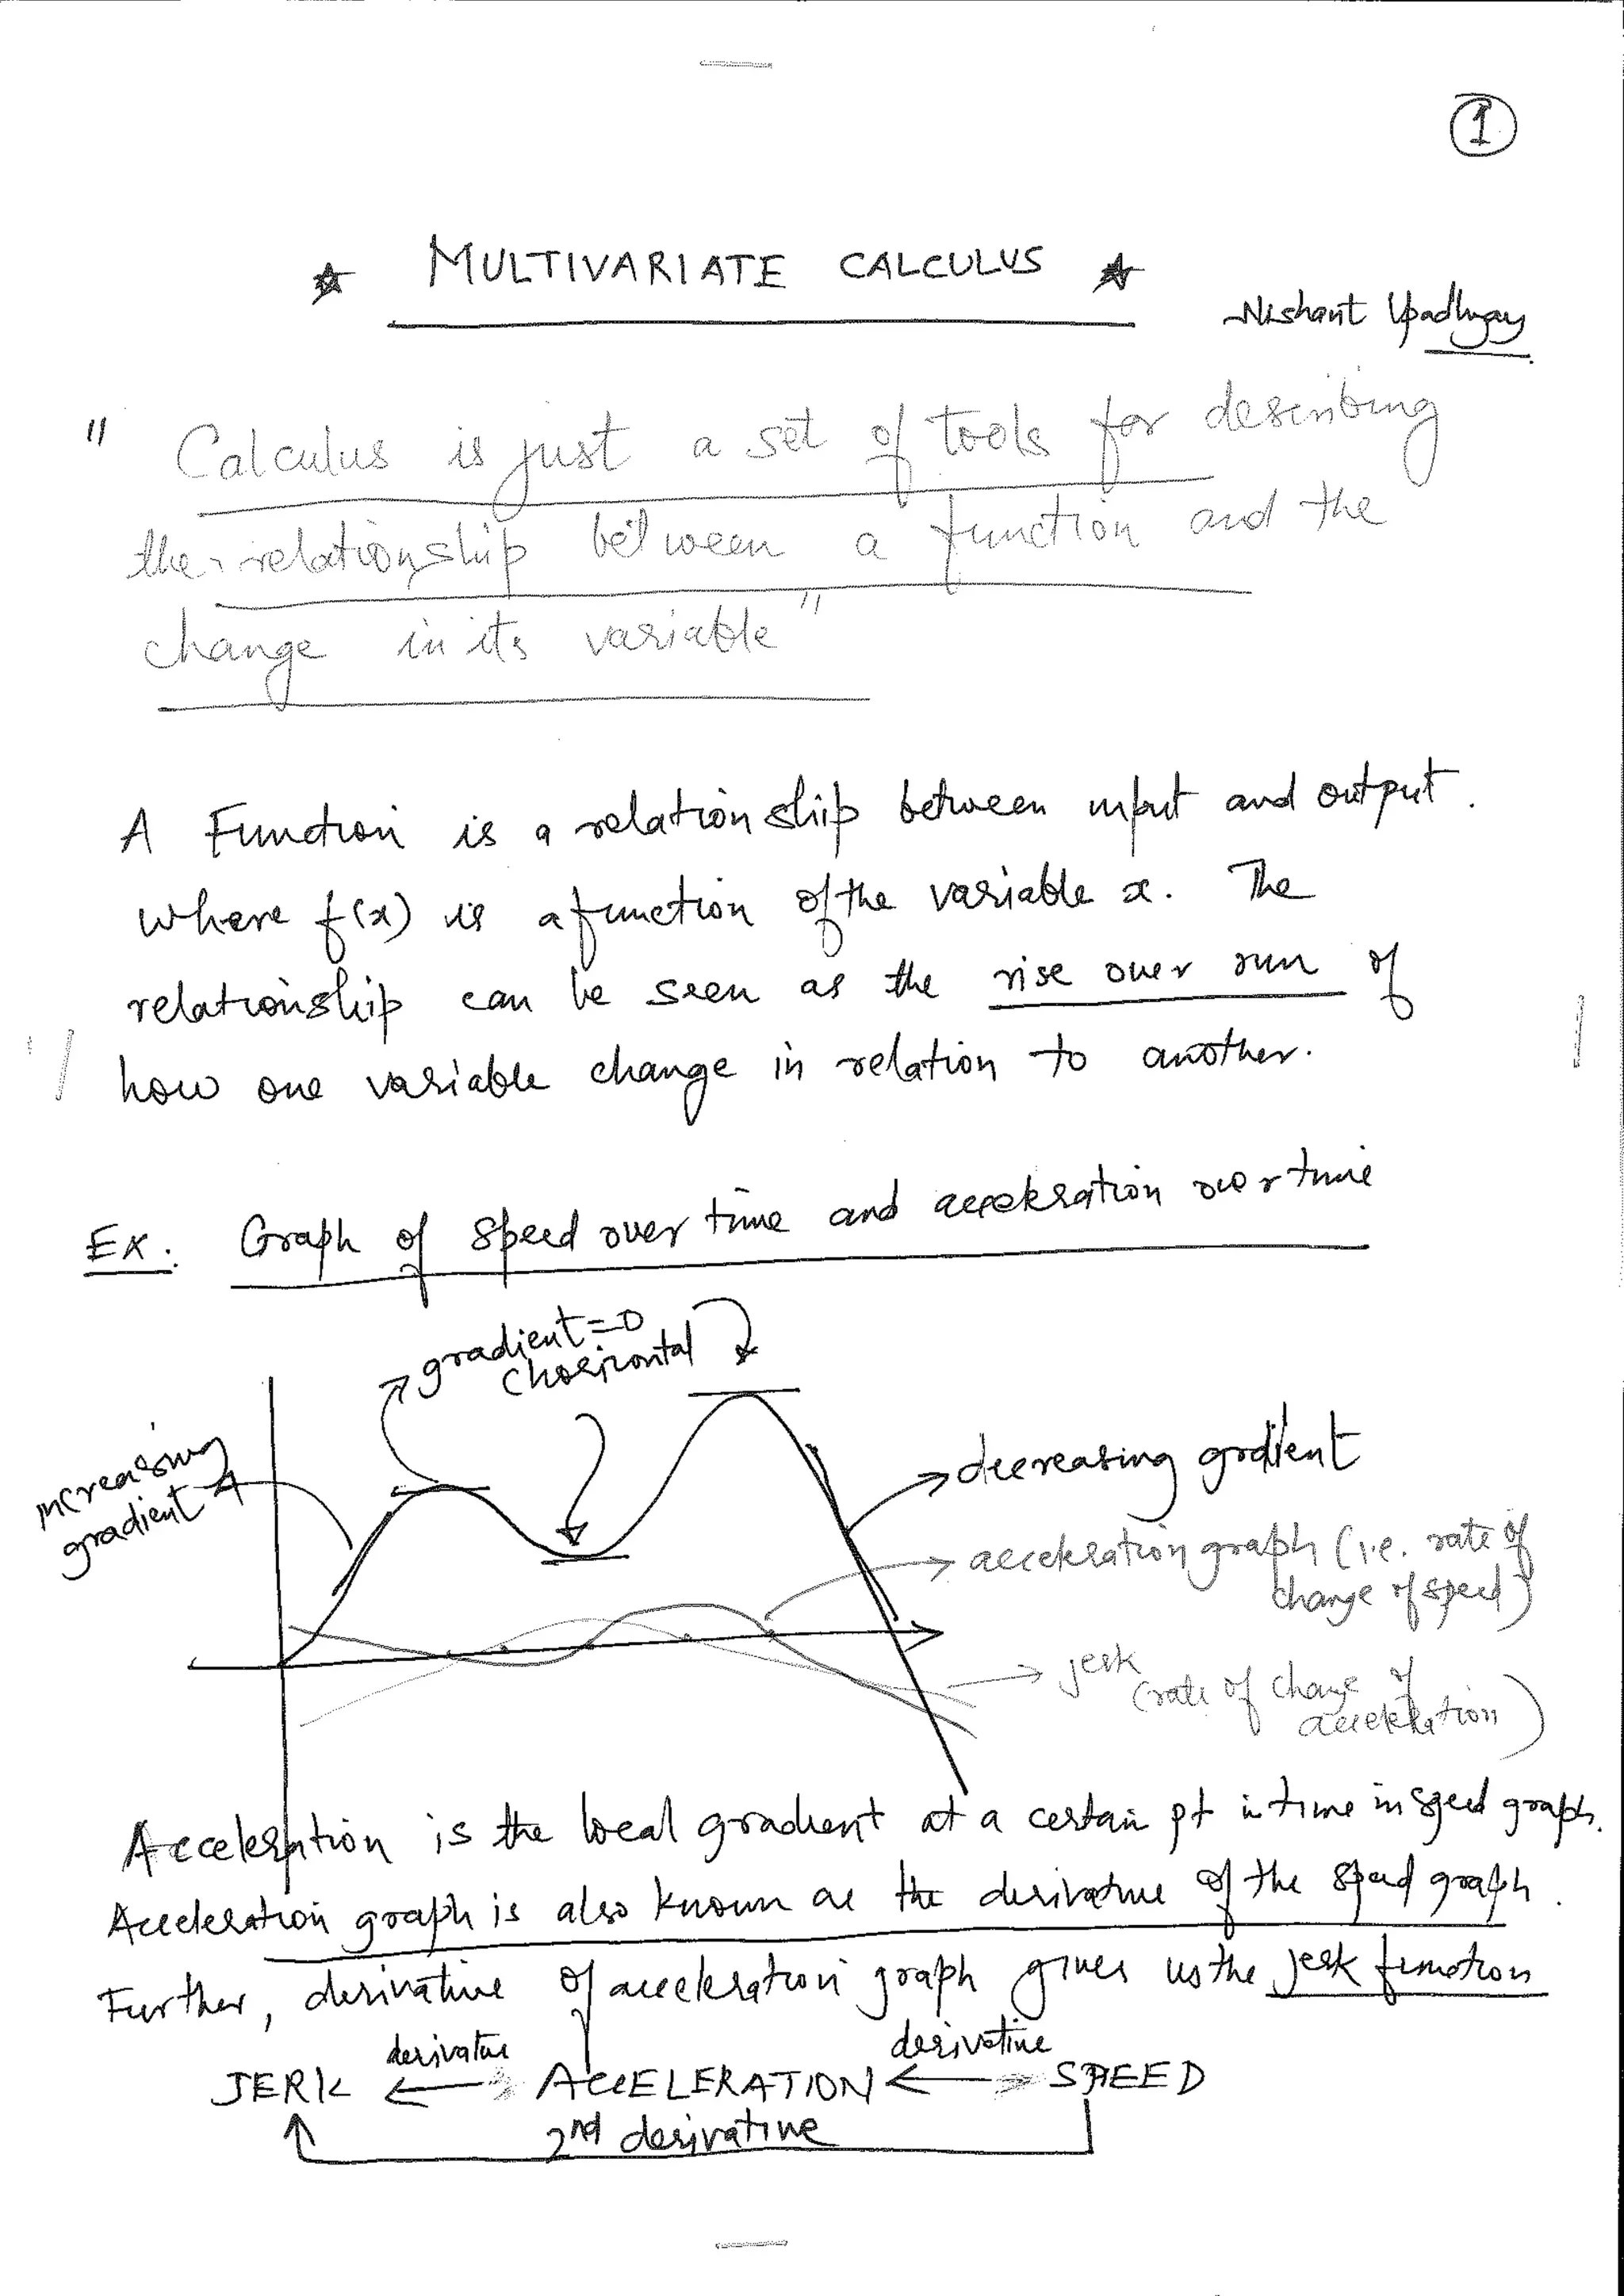 1
MULTIVARIATE CALCULUS
-Nishant Upadhyay
" Calculus is just a set of tools for describing
the relationship between a function and the
change in its variable"
A Function is a relationship between input and output.
where f(x) is a function of the variable x. The
relationship can be seen as the rise over run of
how one variable change in relation to another.
Ex: Graph of speed over time and acceleration over time
gradient=0
(horizontal
increasing
gradient
decreasing gradient
acceleration graph (i.e. rate of
change of speed)
jerk
(rate of change of
acceleration)
Acceleration is the local gradient at a certain pt in time in speed graph.
Acceleration graph is also known as the derivative of the speed graph.
Further, derivative of acceleration graph gives us the jerk function
derivative derivative
JERK ← ACCELERATION ← SPEED
2nd derivative